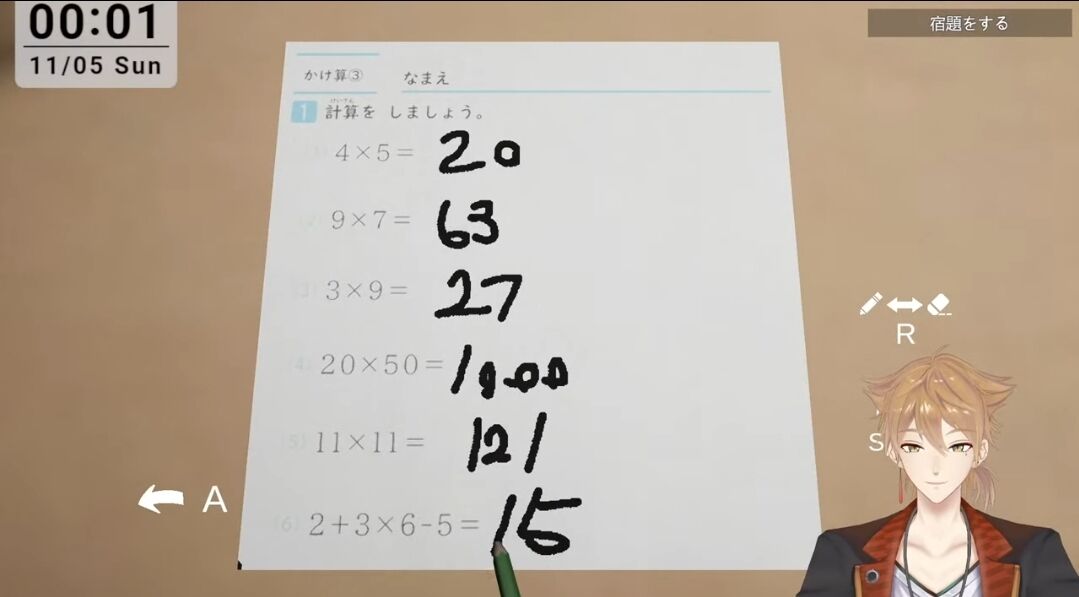 00:01
11/05 Sun
宿題をする
かけ算③ なまえ
1 計算を しましょう。
けいさん
(1) 4×5= 20
(2) 9×7= 63
(3) 3×9= 27
(4) 20×50= 1000
(5) 11×11= 121
(6) 2+3×6-5= 15
R
S
A